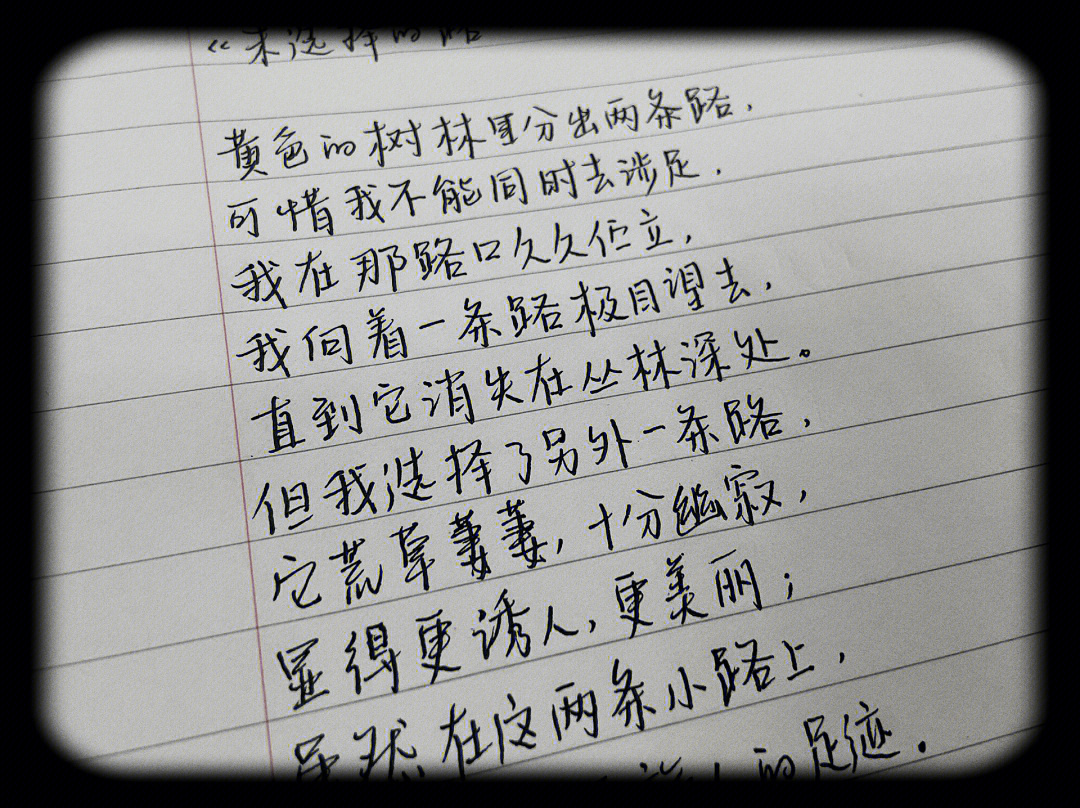 《未选择的路
黄色的树林里分出两条路，
可惜我不能同时去涉足，
我在那路口久久伫立，
我向着一条路极目望去，
直到它消失在丛林深处。
但我选择了另外一条路，
它荒草萋萋，十分幽寂，
显得更诱人，更美丽；
虽然在这两条小路上，
的足迹。